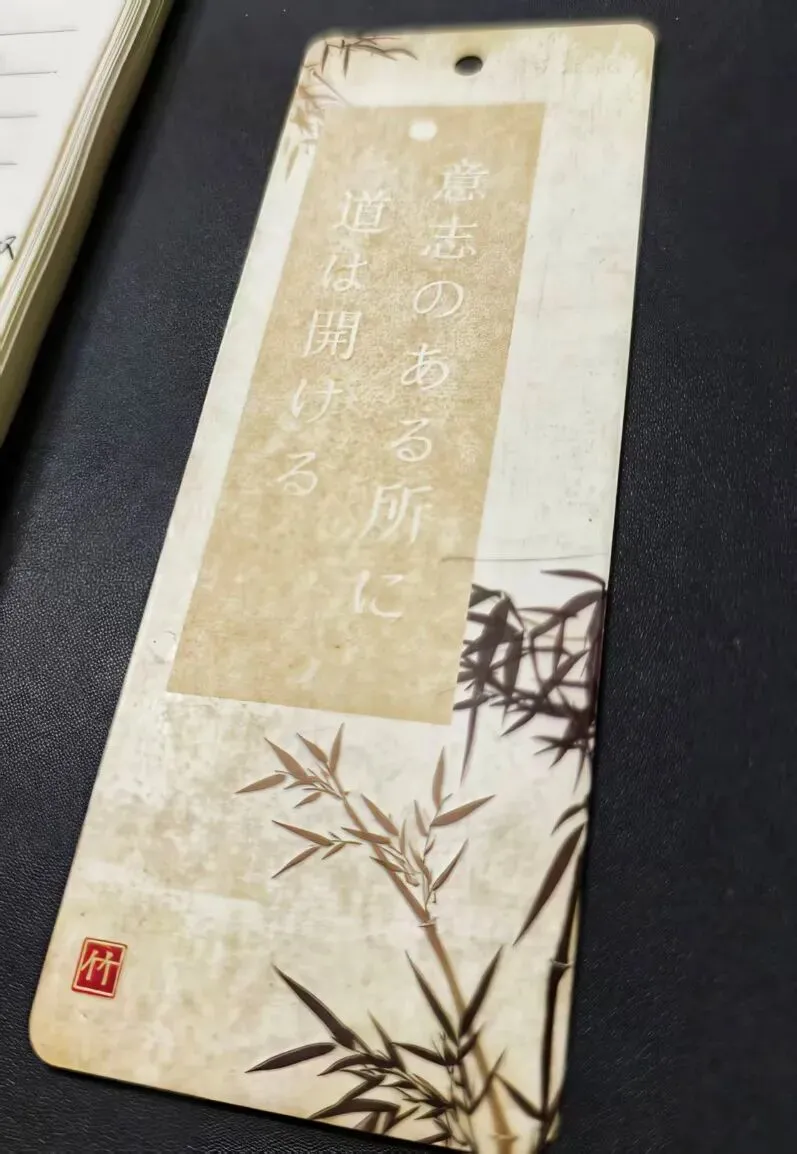 意志のある所に
道は開ける
竹